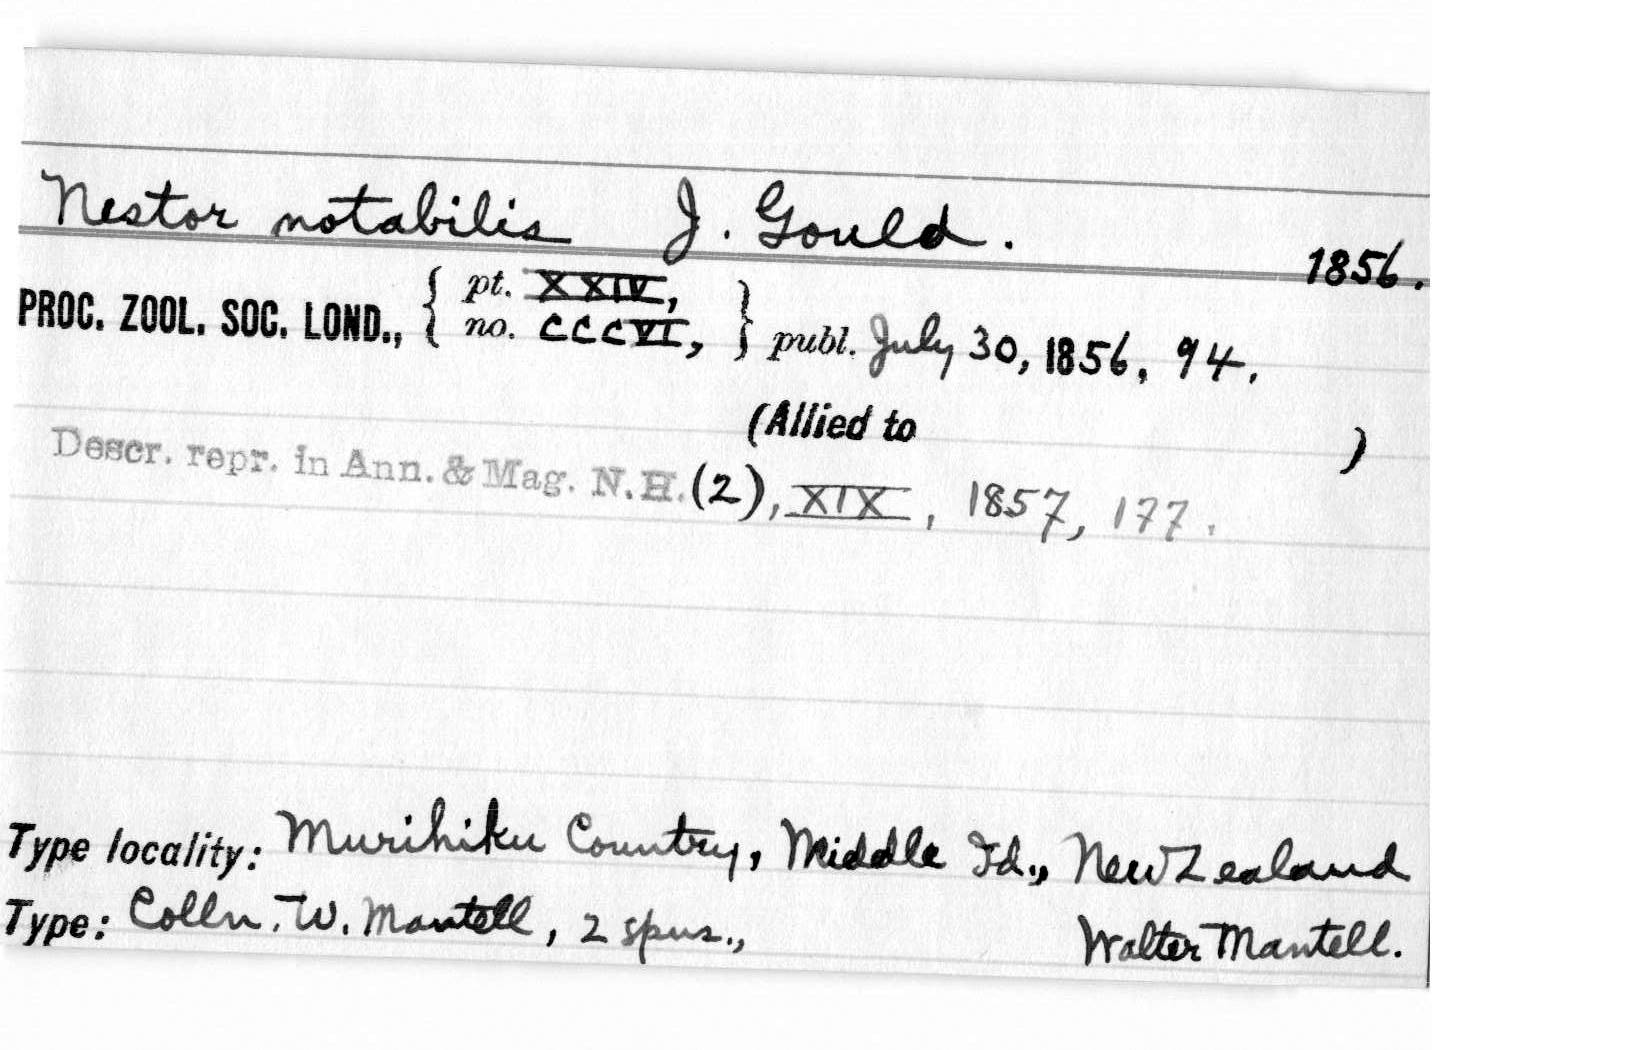 Nestor notabilis J. Gould.
1856.
PROC. ZOOL. SOC. LOND., { pt. XXIV, no. CCCVI, } publ. July 30, 1856, 94.
(Allied to )
Descr. repr. in Ann. & Mag. N.H. (2), XIX, 1857, 177.
Type locality: Murihiku Country, Middle Id., New Zealand
Type: Colln. W. Mantell, 2 spms., Walter Mantell.